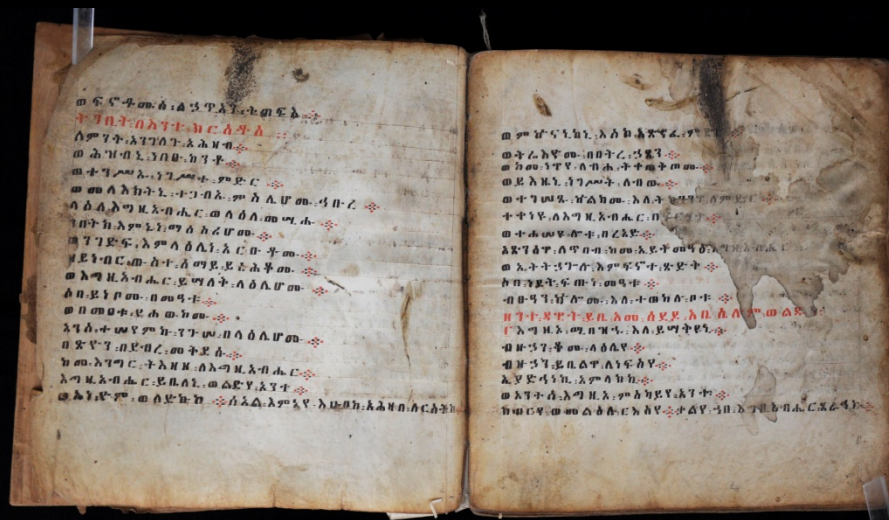 ወፍኖቶሙሰ፡ለኃጥኣን፡ትጠፍእ ፨
ትንቢት፡በእንተ፡ክርስቶስ ፨
ለምንት፡አንገለጉ፡አሕዛብ ፨
ወሕዝብኒ፡ነበቡ፡ከንቶ ፨
ወተንሥኡ፡ነገሥተ፡ምድር ፨
ወመላእክትኒ፡ተጋብኡ፡ምስሌሆሙ፡ኅቡረ ፨
ላዕለ፡እግዚአብሔር፡ወላዕለ፡መሲሑ ፨
ንበትክ፡እምኔነ፡ማእሠሪሆሙ ፨
ወንገድፍ፡እምላዕሌነ፡አርዑቶሙ ፨
ዘይነብር፡ውስተ፡ሰማይ፡ይስሕቆሙ ፨
ወእግዚአብሔር፡ይሣለቅ፡ላዕሌሆሙ ፨
ሶበ፡ይነቦሙ፡በመዓቱ ፨
ወበመዐቱ፡የሀውኮሙ ፨
አንሰ፡ተሠየምኩ፡ንጉሠ፡በላዕሌሆሙ ፨
በጽዮን፡በደብረ፡መቅደሱ ፨
ከመ፡እንግር፡ትእዛዞ፡ለእግዚአብሔር ፨
እግዚአብሔር፡ይቤለኒ፡ወልድየ፡አንተ ፨
ወአነ፡ዮም፡ወለድኩከ ፨ ሰአል፡እምኔየ፡እሁበከ፡አሕዛብ፡ለርስትከ
ወምኵናኒከኒ፡እስከ፡አጽናፈ፡
ወትሬእዮሙ፡በበትረ፡ኃፂን ፨
ወከመ፡ንዋየ፡ለብሐ፡ትቀጠቅጦሙ ፨
ወይእዜኒ፡ነገሥት፡ለብዉ ፨
ወተገሠጹ፡ኵልክሙ፡እለ፡
ተቀነዩ፡ለእግዚአብሔር፡
ወተሐሠዩ፡ሎቱ፡በረዓድ ፨
አጽንዕዋ፡ለጥበብ፡ከመ፡ኢይትመዓዕ፡
ወኢትትኃጐሉ፡እምፍኖተ፡ጽድቅ ፨
ሶበ፡ነደት፡ፍጡነ፡መዓቱ ፨
ብፁዓን፡ኵሎሙ፡እለ፡ተወከሉ፡ቦቱ ፨
ዘንተ፡ዳዊት፡ይቤ፡አመ፡ሰደዶ፡አቤሴሎም፡ወልዱ ፨
፫ እግዚኦ፡ሚበዝኁ፡እለ፡ይሣቅዩኒ ፨
ብዙኃን፡ቆሙ፡ላዕሌየ ፨
ብዙኃን፡ይቤልዋ፡ለነፍስየ ፨
ኢያድኅነኪ፡አምላክኪ ፨
ወአንተሰ፡እግዚኦ፡ምስካይየ፡አንተ ፨
ክብርየ፡ወመልዕለ፡ርእስየ ፨ ቃልየ፡ኀበ፡እግዚአብሔር፡ጸራኅኩ ፨